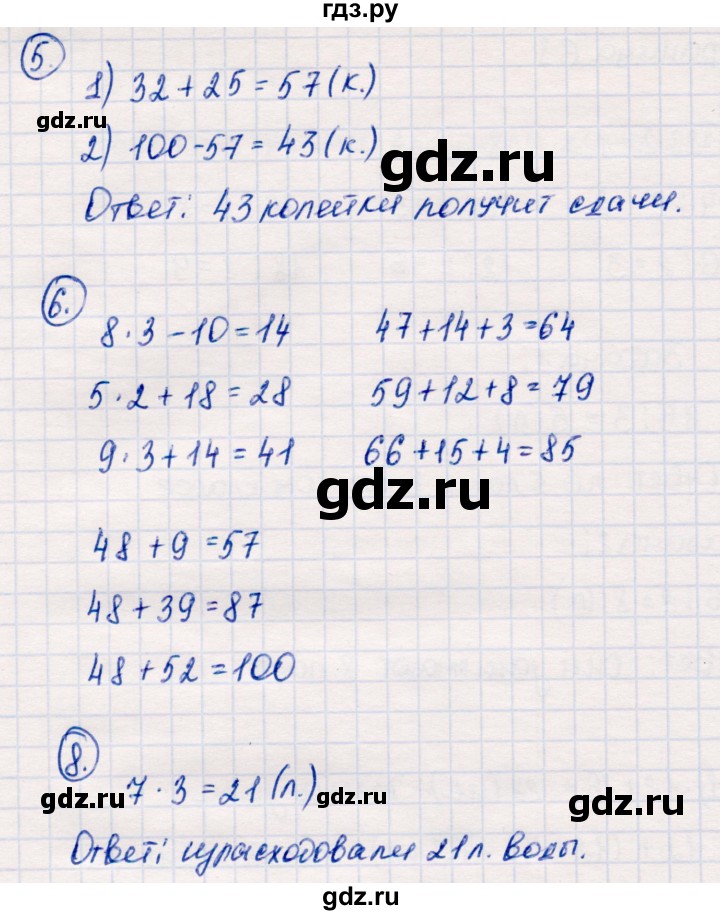 гдз.ру
5.
1) 32 + 25 = 57 (к.)
gdz.ru
2) 100 - 57 = 43 (к.)
gdz.ru
Ответ: 43 копейки получит сдачи.
6.
8 · 3 - 10 = 14 47 + 14 + 3 = 64
5 · 2 + 18 = 28 59 + 12 + 8 = 79
9 · 3 + 14 = 41 66 + 15 + 4 = 85
gdz.ru
48 + 9 = 57
48 + 39 = 87
48 + 52 = 100
8.
7 · 3 = 21 (л.)
gdz.ru gdz.ru gdz.ru
Ответ: израсходовали 21 л. воды.
gdz.ru